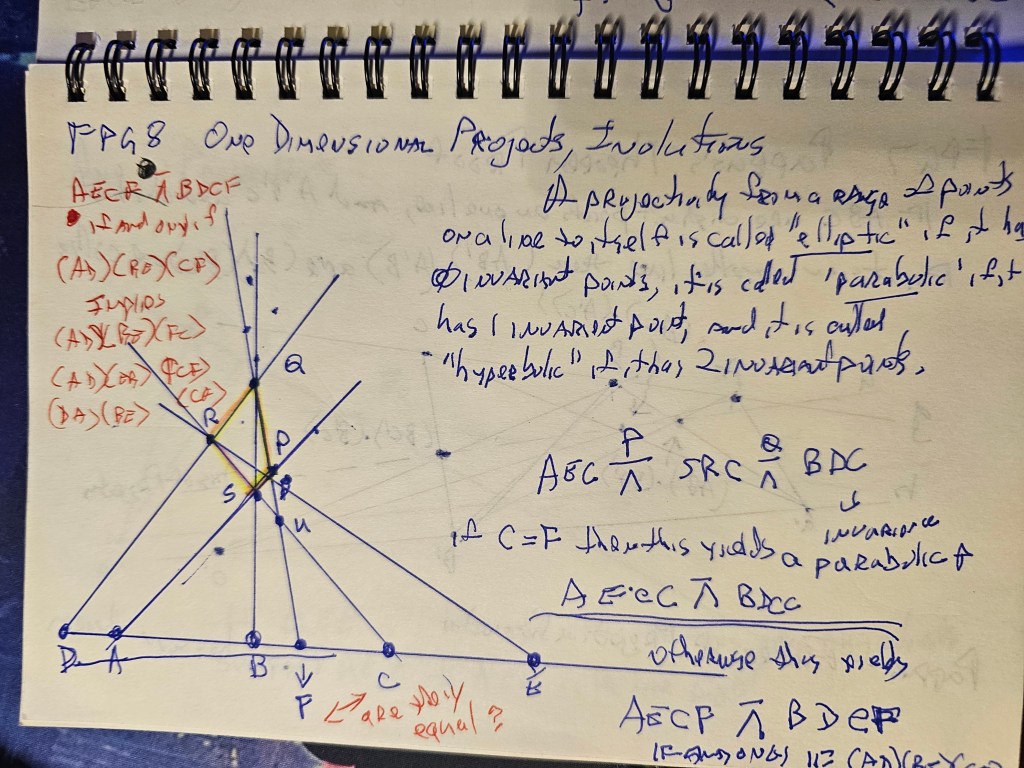 FPG 8 One Dimensional Projects, Involutions
AECF ⊼ BDCF
if and only if
(AD)(BE)(CF)
Implies
(AD)(BE)(FC)
(AD)(EB)(CF)
(CF)
(DA)(BE)
A projectivity from a range of points
on a line to itself is called "elliptic" if it has
0 invariant points, it is called "parabolic" if it
has 1 invariant point, and it is called
"hyperbolic" if it has 2 invariant points.
Q
R
P
S
U
AEC P/⊼ SRC Q/⊼ BDC
invariance
if C=F then this yields a parabolic
AECC ⊼ BDCC
otherwise this yields
D A B F C E
are they
equal?
AECF ⊼ BDCF
IF AND ONLY IF (AD)(BE)